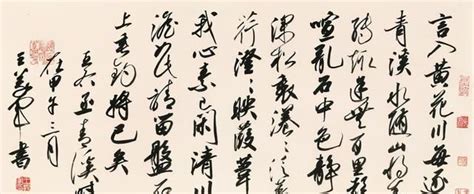 言入黄花川每逐
青溪水随山将万
转趣途无百里声
喧乱石中色静
深松里漾漾泛菱
荇澄澄映葭苇
我心素已闲清川
澹如此请留盘石
上垂钓将已矣
王右丞青溪时
在甲午三月
王军书